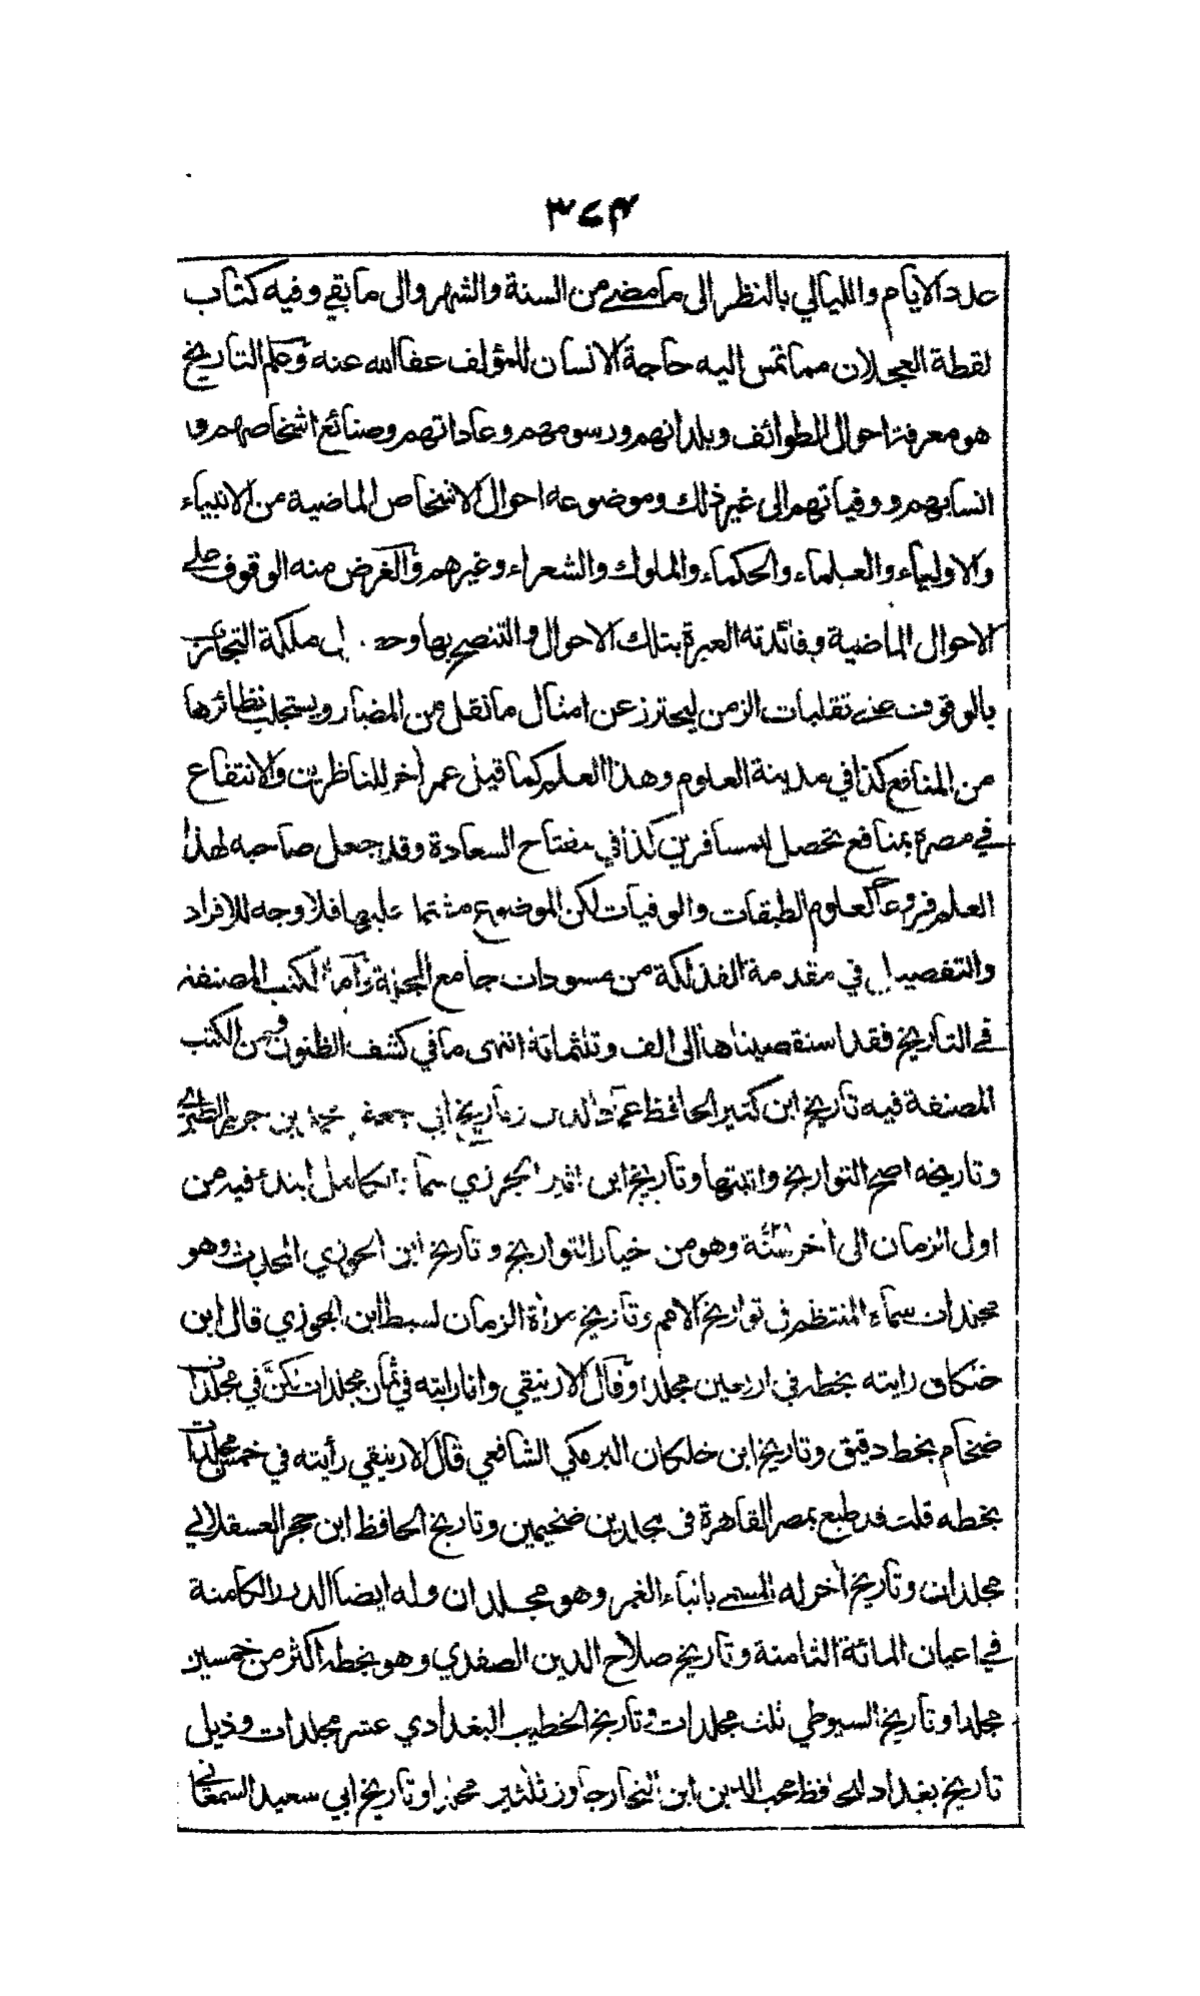 ٣٧٤
عدد الايام والليالي بالنظر الى ما مضے من السنة والشهر والى ما بقي وفيه كتاب
لقطة العجلان مما تمس اليه حاجة الانسان للمؤلف عفا الله عنه وعلم التاريخ
هو معرفة احوال الطوائف وبلدانهم ورسومهم وعاداتهم وصنائع اشخاصهم و
انسابهم ووفياتهم الى غير ذلك وموضوعه احوال الاشخاص الماضية من الانبياء
والاولياء والعلماء والحكماء والملوك والشعراء وغيرهم والغرض منه الوقوف على
الاحوال الماضية وفائدته العبرة بتلك الاحوال والتنصح بها وحصول ملكة التجارب
بالوقوف على تقلبات الزمن ليحترز عن امثال ما نقل من المضار ويستجلب نظائرها
من المنافع كذا في مدينة العلوم وهذا العلم كما قيل عمر أخر للناظرين والانتفاع
في مصره بمنافع تحصل للمسافرين كذا في مفتاح السعادة وقد جعل صاحبه لهذا
العلم فروعا كعلوم الطبقات والوفيات لكن الموضوع مشتملا عليها فلا وجه للافراد
والتفصيل في مقدمة الفذلكة من مسودات جامع المجلة وأما الكتب المصنفة
في التاريخ فقد استقصيناها الى الف وثلثمائة انتهى ما في كشف الظنون فمن الكتب
المصنفة فيه تاريخ ابن كثير الحافظ عماد الدين وتاريخ ابي جعفر محمد بن جرير الطبري
وتاريخه اصح التواريخ واثبتها وتاريخ ابن اثير الجزري سماه الكامل ابتدء فيه من
اول الزمان الى أخر سنة وهو من خيار التواريخ وتاريخ ابن الجوزي المحدث وهو
مجلدات سماه المنتظم في تواريخ الامم وتاريخ مرأة الزمان لسبط ابن الجوزي قال ابن
خلكان رايته بخطه في اربعين مجلدا وقال الارنيقي وانا رايته في ثمان مجلدات لكن في مجلدات
ضخام بخط دقيق وتاريخ ابن خلكان البرمكي الشافعي قال الارنيقي رأيته في خمس مجلدات
بخطه قلت قد طبع بمصر القاهرة في مجلدين ضخيمين وتاريخ الحافظ ابن حجر العسقلاني
مجلدان وتاريخ أخر له المسمے بانباء الغمر وهو مجلدان وله ايضا الدرر الكامنة
في اعيان المائة الثامنة وتاريخ صلاح الدين الصفدي وهو بخطه اكثر من خمسين
مجلدا وتاريخ السيوطي ثلث مجلدات وتاريخ الخطيب البغدادي عشر مجلدات وذيل
تاريخ بغداد للحافظ محب الدين ابن النجار جاوز ثلثين مجلدا وتاريخ ابي سعيد السمعاني